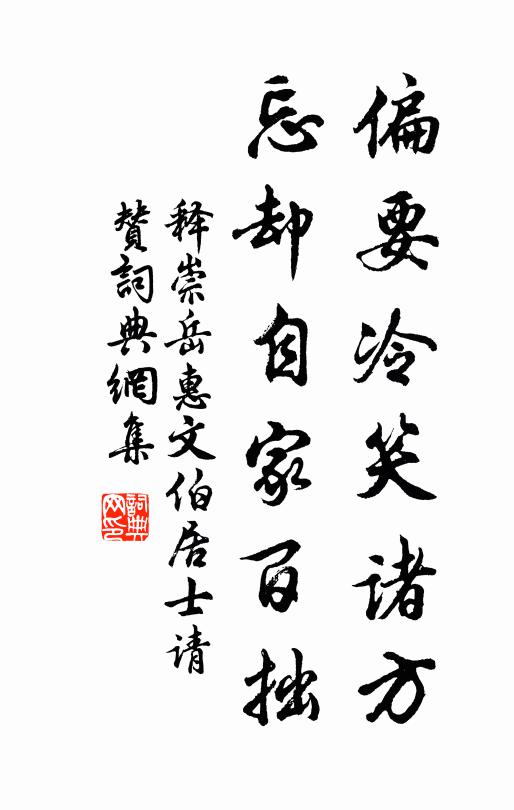 偏要冷笑诸方
忘却自家百拙
释崇岳惠文伯居士请
赞词典網集
詞典网印